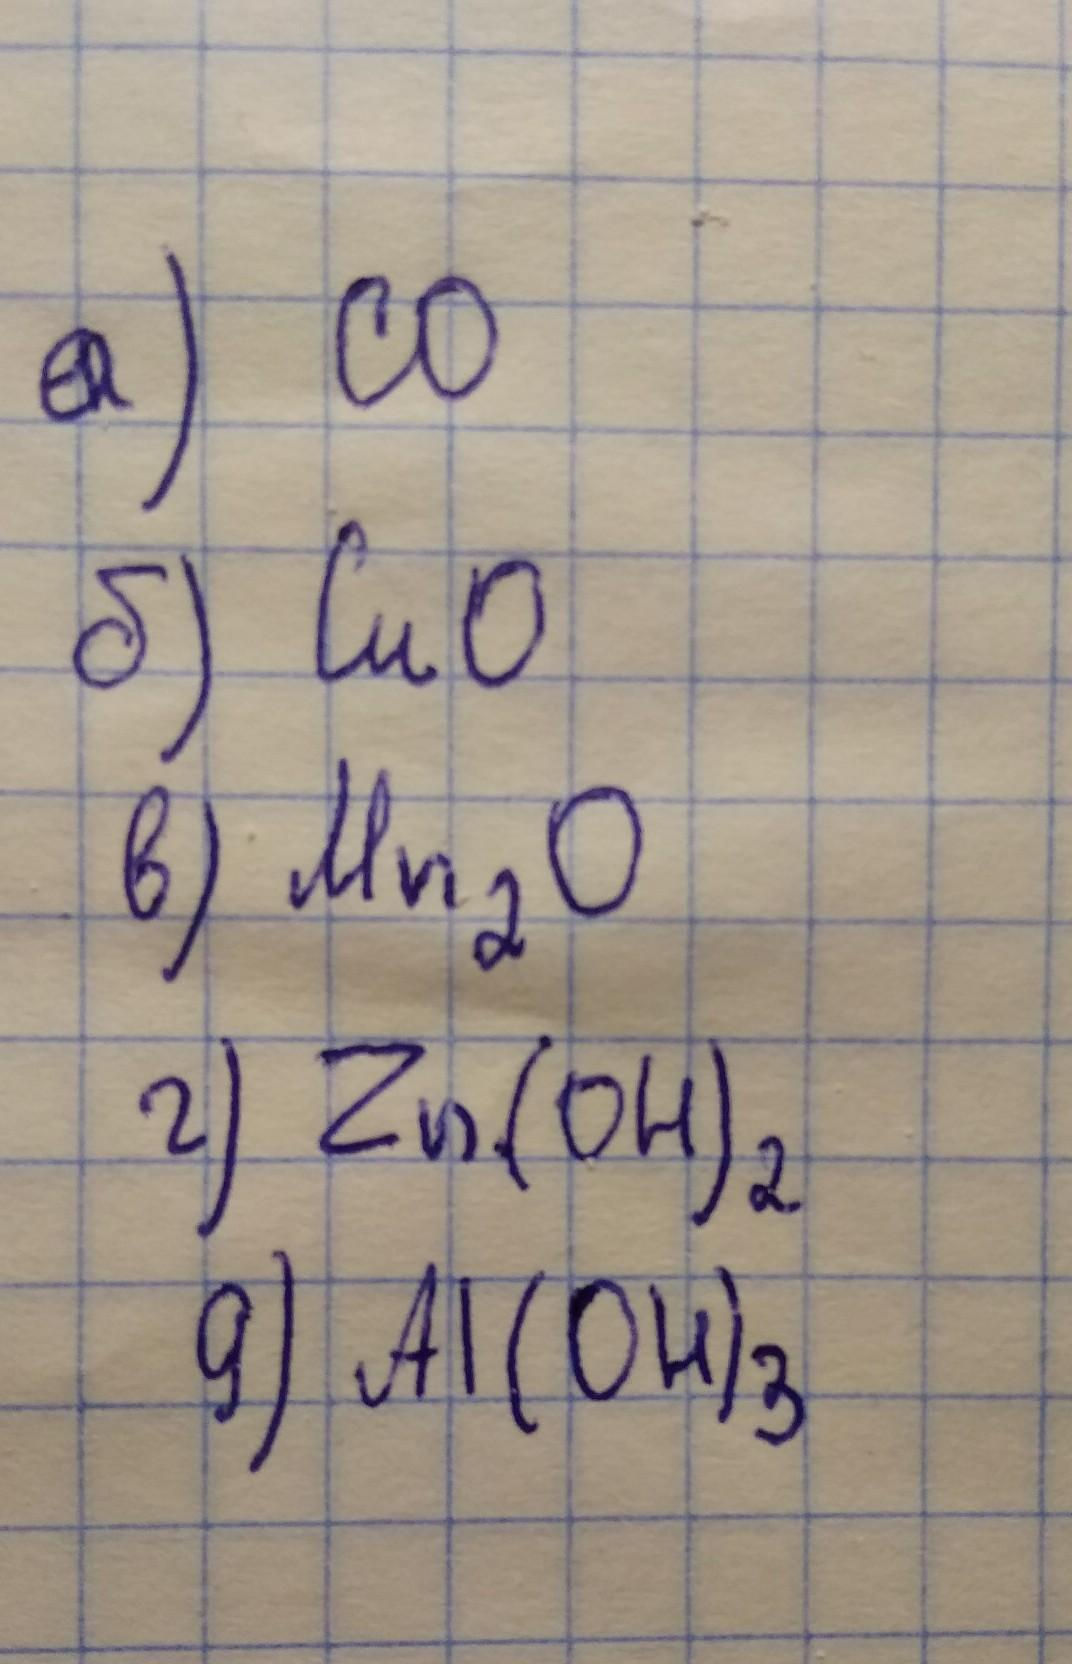 а) CO
б) CuO
в) Mn₂O
г) Zn(OH)₂
д) Al(OH)₃